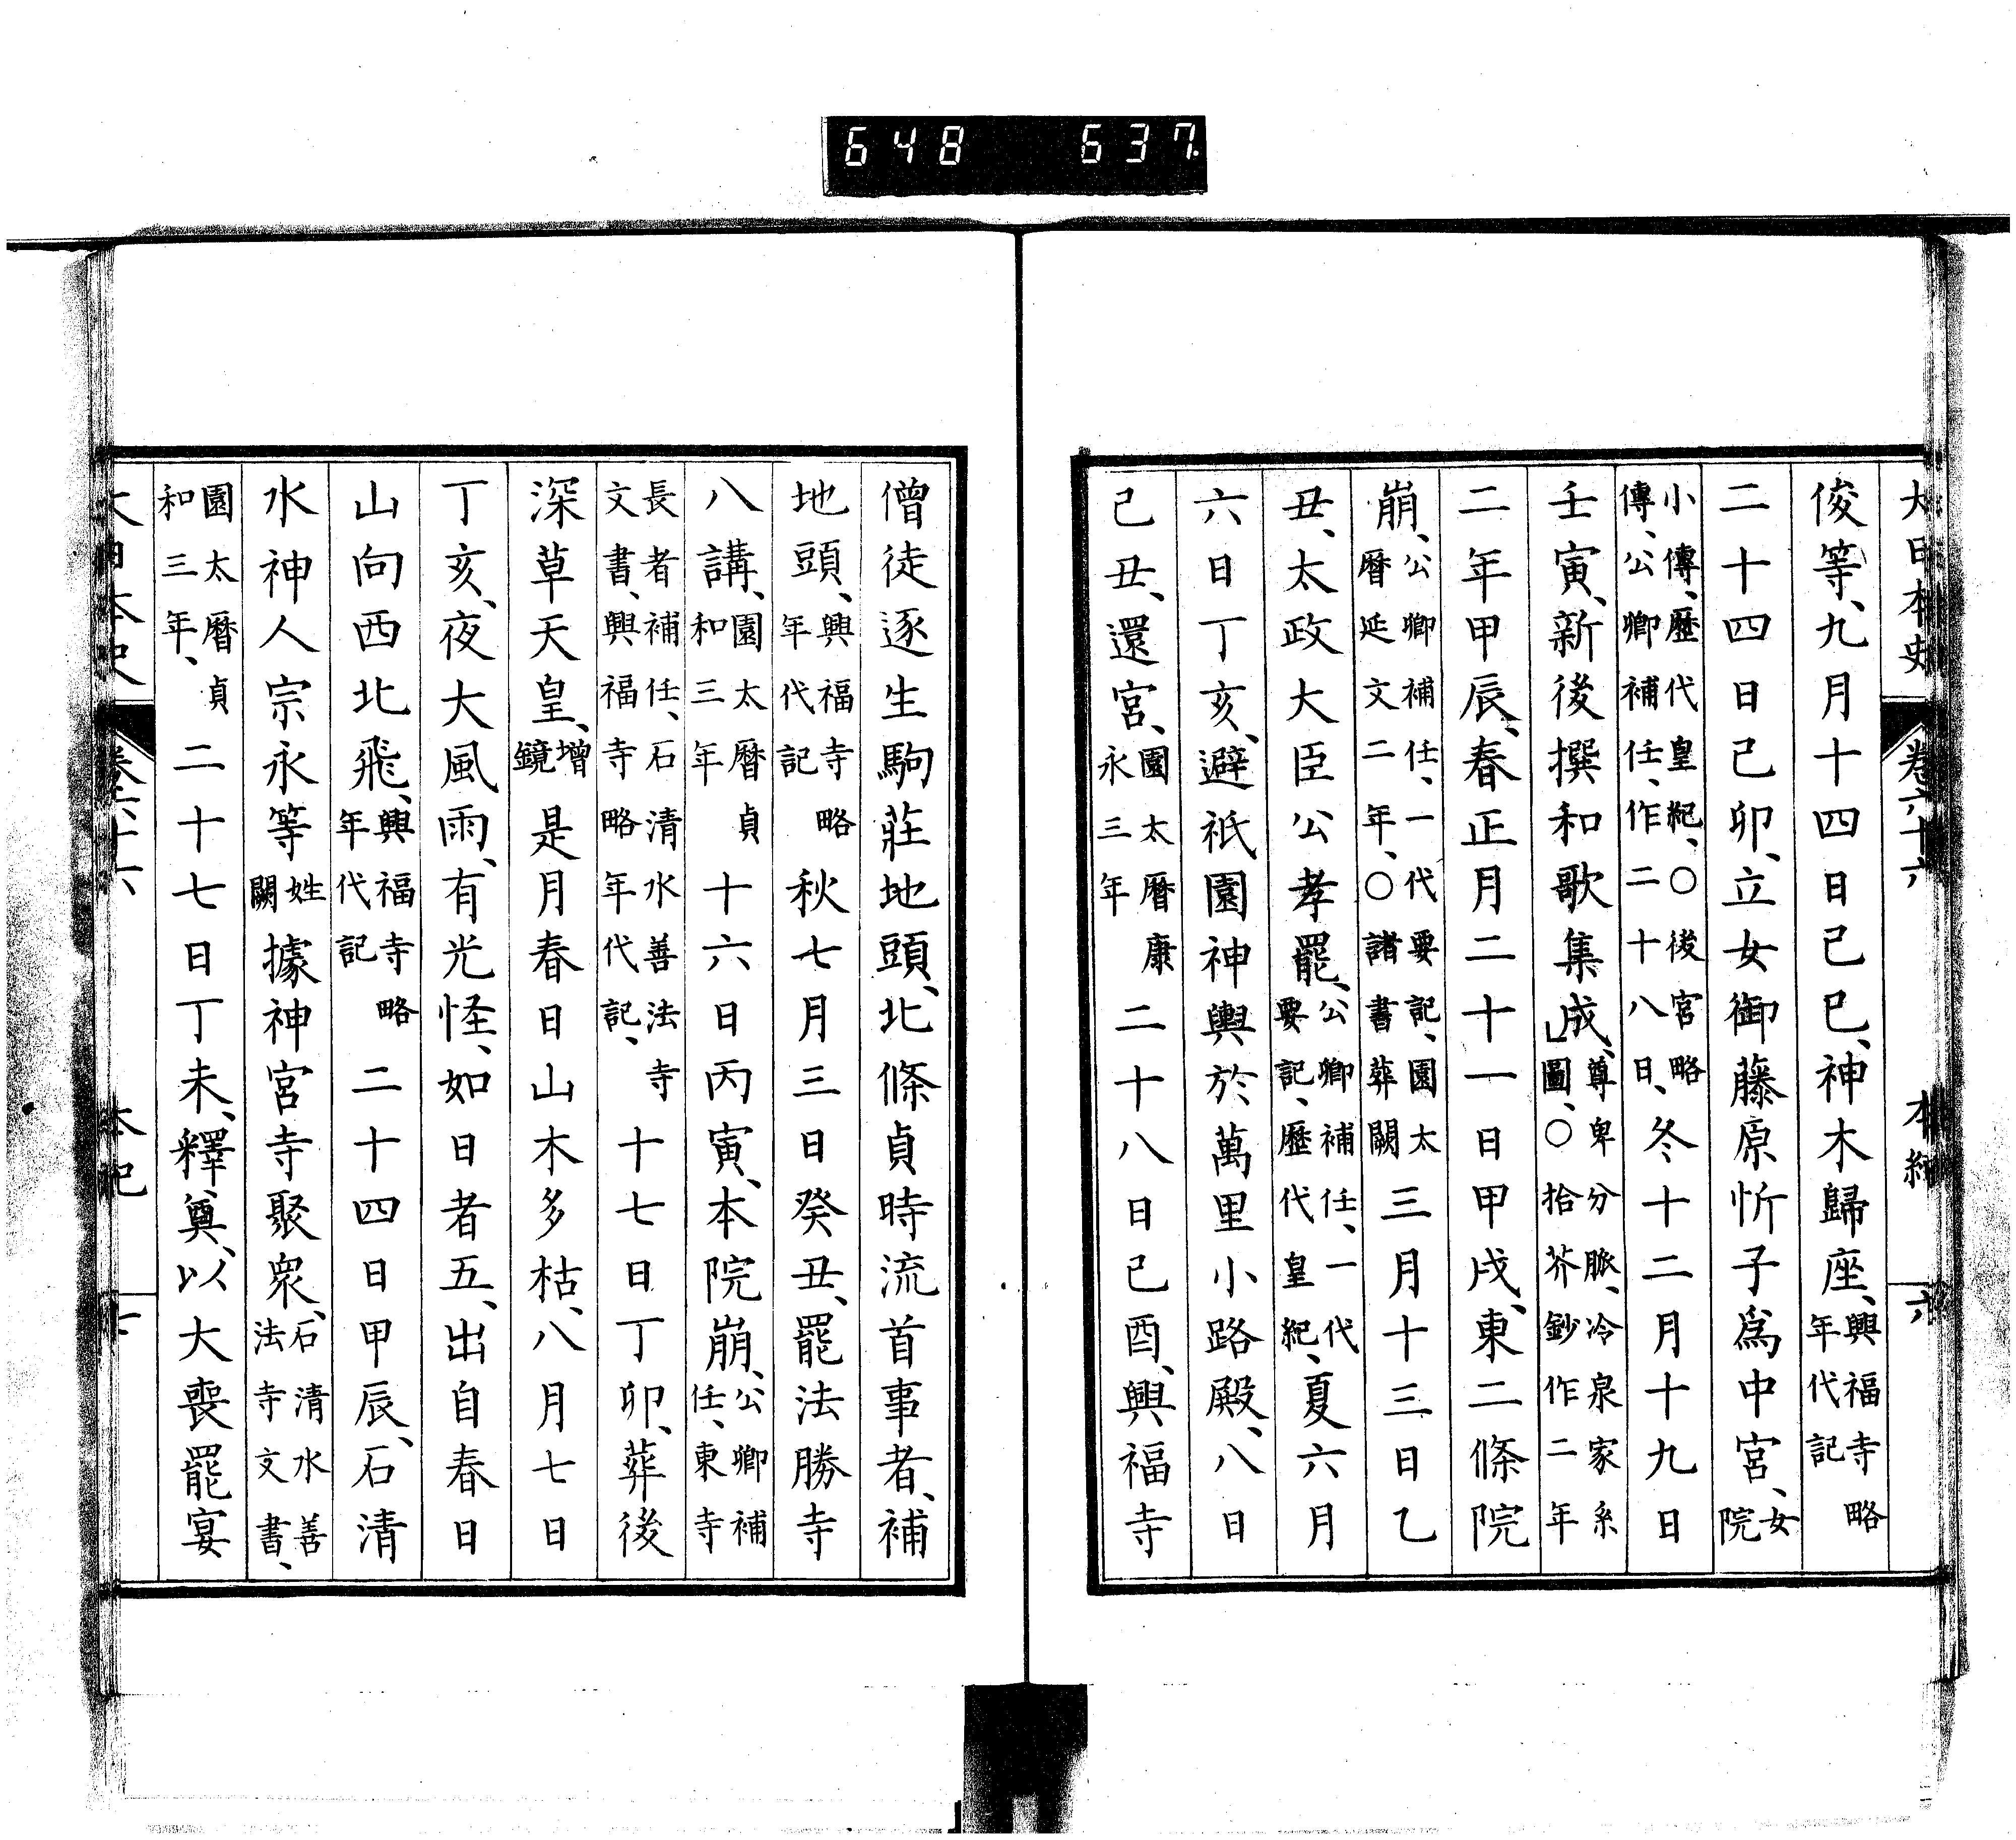 648 637.
大日本史 卷六十六 本紀 六
俊等、九月十四日己巳、神木歸座、興福寺略年代記
二十四日己卯、立女御藤原忻子爲中宮、女院
小傳、歷代皇紀、○後宮略傳、公卿補任、作二十八日、冬十二月十九日
壬寅、新後撰和歌集成、尊卑分脈、冷泉家系圖、○拾芥鈔作二年
二年甲辰、春正月二十一日甲戌、東二條院
崩、公卿補任、一代要記、園太曆延文二年、○諸書葬闕三月十三日乙
丑、太政大臣公孝罷、公卿補任、一代要記、歷代皇紀、夏六月
六日丁亥、避祇園神輿於萬里小路殿、八日
己丑、還宮、園太曆康永三年二十八日己酉、興福寺
僧徒逐生駒莊地頭、北條貞時流首事者、補
地頭、興福寺略年代記秋七月三日癸丑、罷法勝寺
八講、園太曆貞和三年十六日丙寅、本院崩、公卿補任、東寺
長者補任、石清水善法寺文書、興福寺略年代記、十七日丁卯、葬後
深草天皇、增鏡是月春日山木多枯、八月七日
丁亥、夜大風雨、有光怪、如日者五、出自春日
山向西北飛、興福寺略年代記二十四日甲辰、石清
水神人宗永等姓闕據神宮寺聚衆、石清水善法寺文書、
園太曆貞和三年、二十七日丁未、釋奠、以大喪罷宴
大日本史 卷六十六 本紀 七